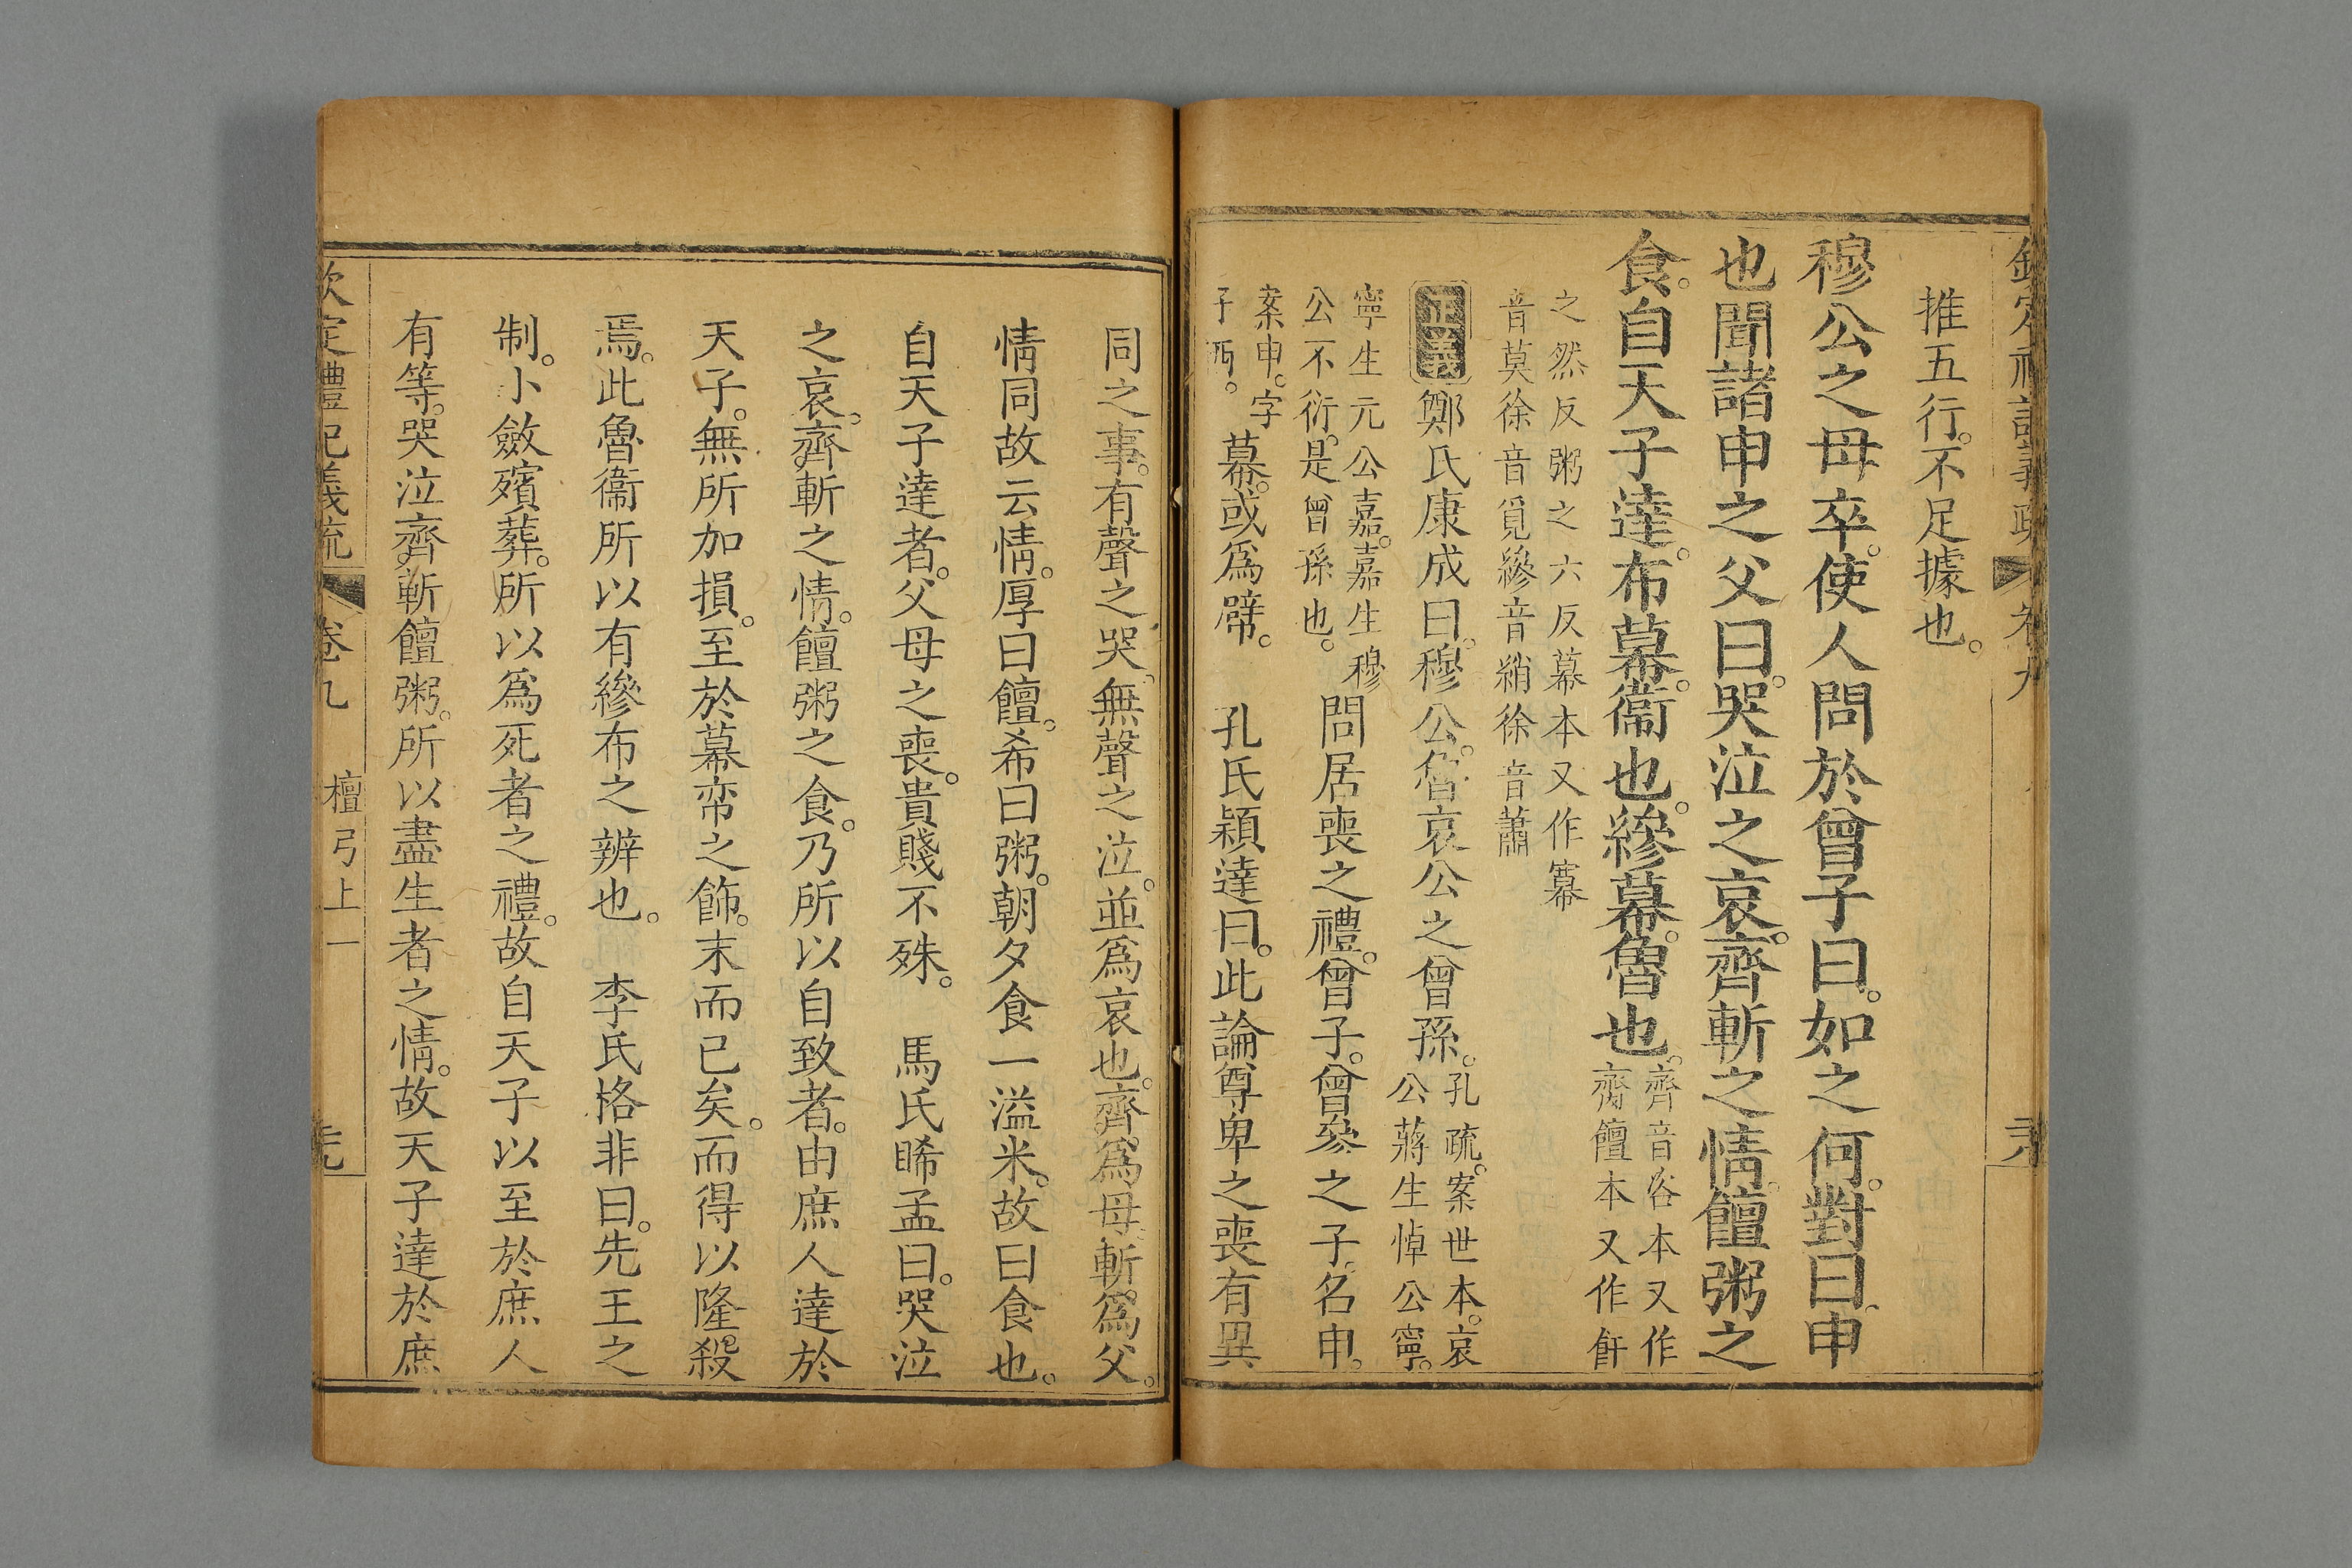 欽定禮記義疏 卷九
推五行。不足據也。
穆公之母卒。使人問於曾子曰。如之何。對曰。申
也聞諸申之父曰。哭泣之哀。齊斬之情。饘粥之
食。自天子達。布幕。衞也。縿幕。魯也。齊音咨本又作
齋饘本又作飦
之然反粥之六反幕本又作幂
音莫徐音覓縿音綃徐音蕭
正義 鄭氏康成曰。穆公。魯哀公之曾孫。孔疏。案世本。哀
公蔣生悼公寧。
寧生元公嘉。嘉生穆
公不衍。是曾孫也。問居喪之禮。曾子。曾參之子。名申。
案申。字
子西。幕。或爲㡙。 孔氏穎達曰。此論尊卑之喪有異
同之事。有聲之哭。無聲之泣。並爲哀也。齊。爲母。斬。爲父。
情同故云情。厚曰饘。希曰粥。朝夕食一溢米。故曰食也。
自天子達者。父母之喪。貴賤不殊。 馬氏睎孟曰。哭泣
之哀。齊斬之情。饘粥之食。乃所以自致者。由庶人達於
天子。無所加損。至於幕帟之飾。末而已矣。而得以隆殺
焉。此魯衞所以有縿布之辨也。 李氏格非曰。先王之
制。小斂殯葬。所以爲死者之禮。故自天子以至於庶人
有等。哭泣齊斬饘粥。所以盡生者之情。故天子達於庶
欽定禮記義疏 卷九 檀弓上一